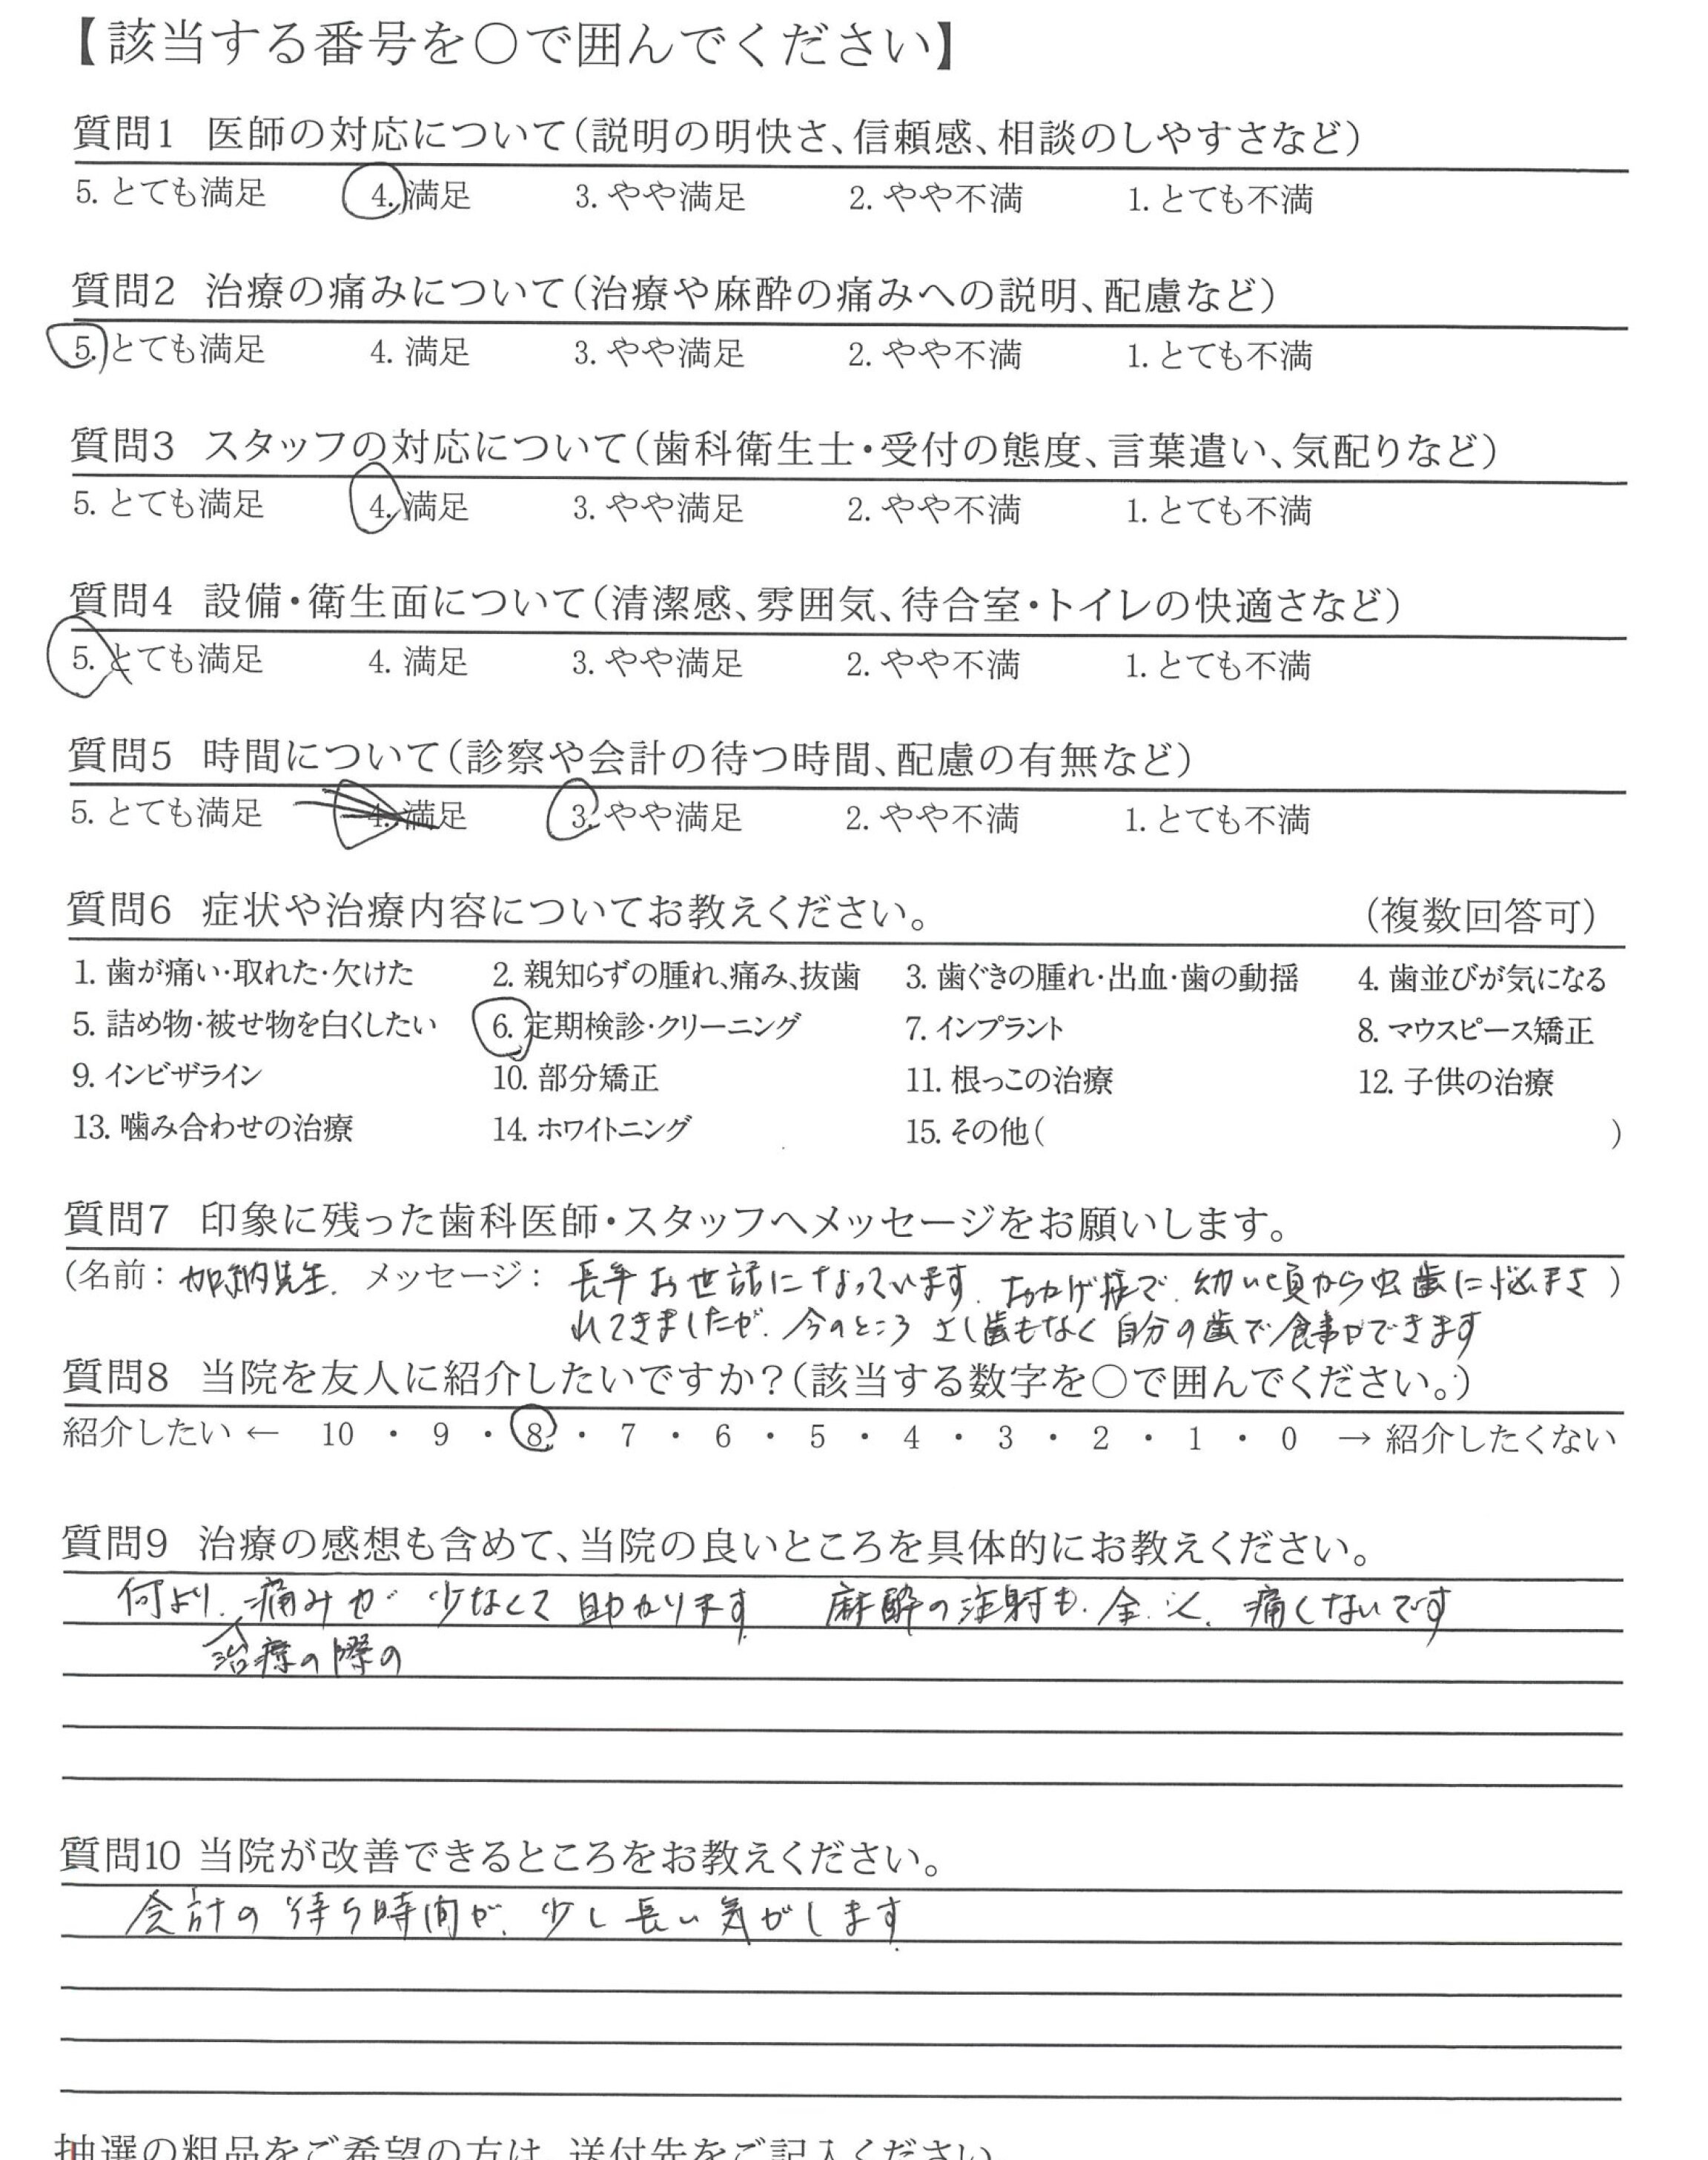 【該当する番号を〇で囲んでください】
質問1 医師の対応について(説明の明快さ、信頼感、相談のしやすさなど)
5. とても満足 4. 満足 3. やや満足 2. やや不満 1. とても不満
質問2 治療の痛みについて(治療や麻酔の痛みへの説明、配慮など)
5. とても満足 4. 満足 3. やや満足 2. やや不満 1. とても不満
質問3 スタッフの対応について(歯科衛生士・受付の態度、言葉遣い、気配りなど)
5. とても満足 4. 満足 3. やや満足 2. やや不満 1. とても不満
質問4 設備・衛生面について(清潔感、雰囲気、待合室・トイレの快適さなど)
5. とても満足 4. 満足 3. やや満足 2. やや不満 1. とても不満
質問5 時間について(診察や会計の待つ時間、配慮の有無など)
5. とても満足 4. 満足 3. やや満足 2. やや不満 1. とても不満
質問6 症状や治療内容についてお教えください。 (複数回答可)
1. 歯が痛い・取れた・欠けた 2. 親知らずの腫れ、痛み、抜歯 3. 歯ぐきの腫れ・出血・歯の動揺 4. 歯並びが気になる
5. 詰め物・被せ物を白くしたい 6. 定期検診・クリーニング 7. インプラント 8. マウスピース矯正
9. インビザライン 10. 部分矯正 11. 根っこの治療 12. 子供の治療
13. 噛み合わせの治療 14. ホワイトニング 15. その他( )
質問7 印象に残った歯科医師・スタッフへメッセージをお願いします。
(名前: 加納先生. メッセージ: 長年お世話になっています. おかげ様で. 幼い頃から虫歯に悩まさ)
れてきましたが. 今のところ さし歯もなく 自分の歯で食事ができます
質問8 当院を友人に紹介したいですか?(該当する数字を〇で囲んでください。)
紹介したい ← 10 ・ 9 ・ 8 ・ 7 ・ 6 ・ 5 ・ 4 ・ 3 ・ 2 ・ 1 ・ 0 → 紹介したくない
質問9 治療の感想も含めて、当院の良いところを具体的にお教えください。
何より. 痛みが 少なくて 助かります. 麻酔の注射も. 全々. 痛くないです
治療の際の
質問10 当院が改善できるところをお教えください。
会計の 待ち時間が. 少し 長い 気がします.
抽選の粗品をご希望の方は、送付先をご記入ください